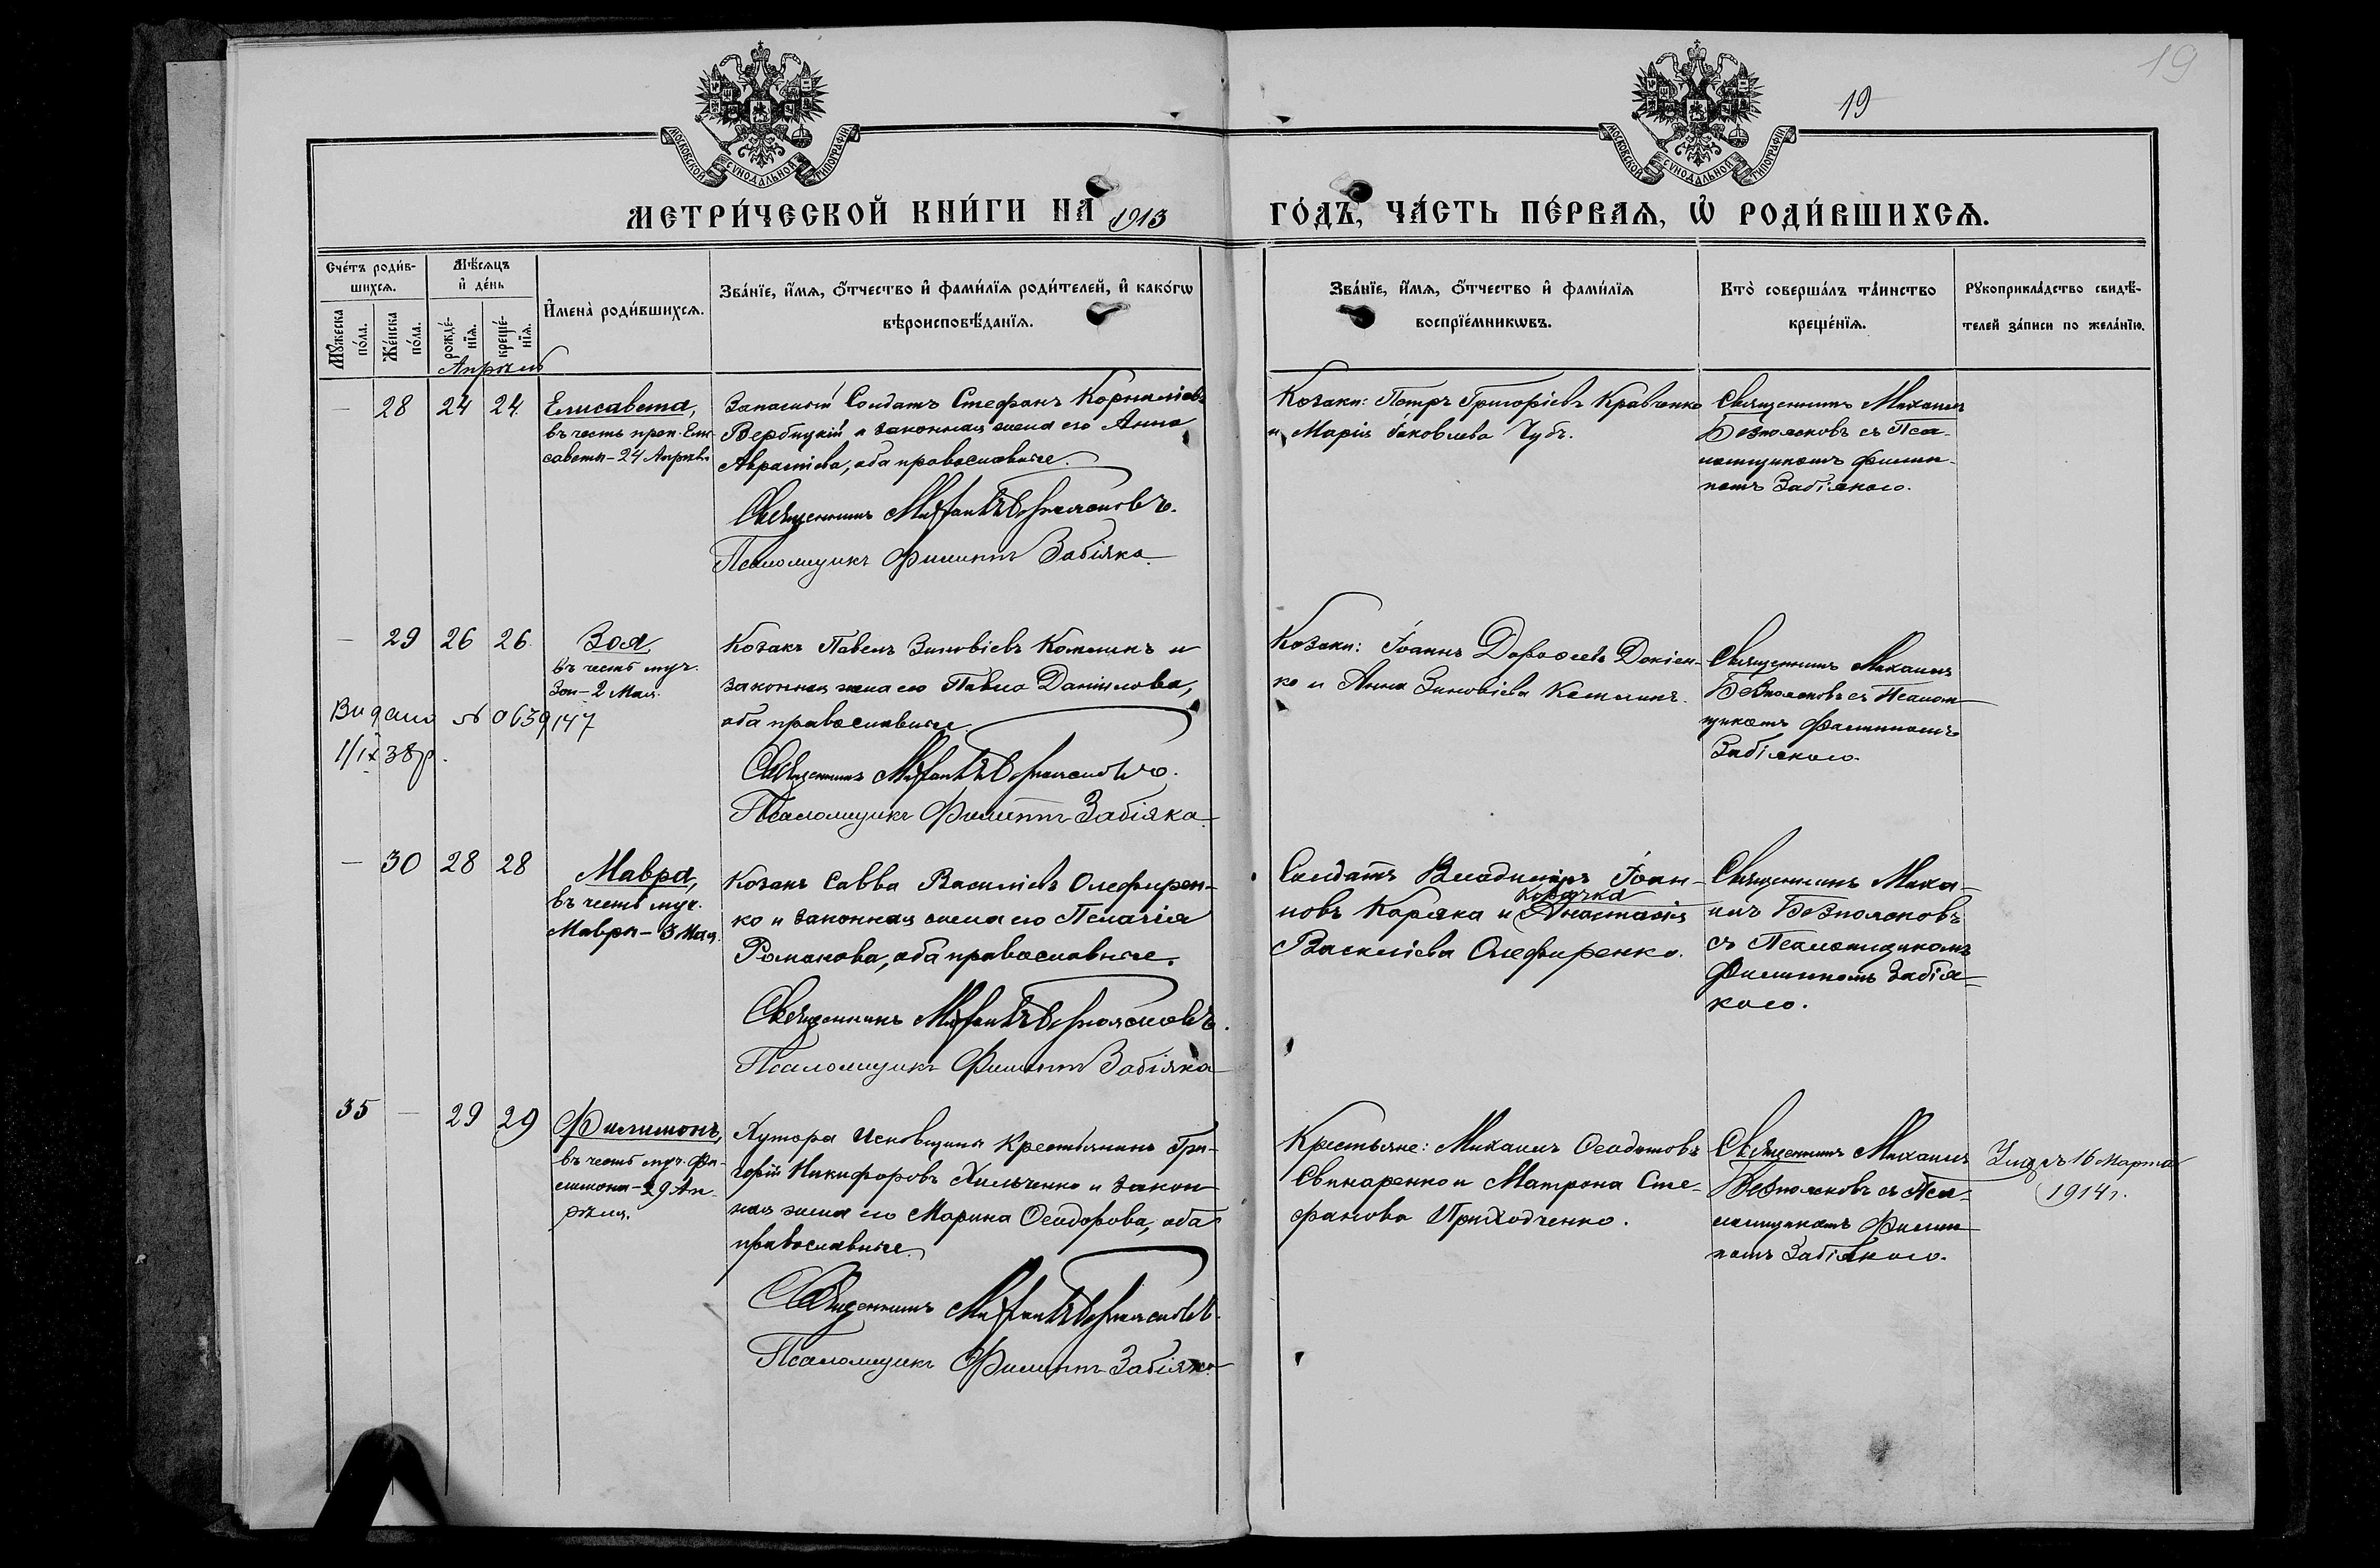 19
19
МОСКОВСКОЙ СѴНОДАЛЬНОЙ ТИПОГРАФІИ
МОСКОВСКОЙ СѴНОДАЛЬНОЙ ТИПОГРАФІИ
МЕТРИ́ЧЕСКОЙ КНИ́ГИ НА 1913 ГО́ДЪ, ЧА́СТЬ ПЕ́РВАЯ, Ѽ РОДИ́ВШИХСЯ.
Сче́тъ роди́в-
шихся.
Мꙋ́жеска по́ла.
Же́нска по́ла.
Мѣ́сяцъ
и҆ де́нь
рожде́-
нїѧ.
креще́-
нїѧ.
И҆мена̀ роди́вшихсѧ.
Зва́нїе, и҆́мѧ, ѻ҆́тчество и҆ фами́лїѧ роди́телей, и҆ како́гѡ
вѣроисповѣ́данїѧ.
Зва́нїе, и҆́мѧ, ѻ҆́тчество и҆ фами́лїѧ
воспрїе́мникѡвъ.
Кто̀ соверша́лъ та́инство
креще́нїѧ.
Рꙋкоприкла́дство свидѣ́-
телей за́писи по жела́нїю.
Апрѣль
— 28 24 24
Елисавета,
въ честь преп. Ели-
саветы – 24 Апрѣля
Запасный Солдатъ Стефанъ Корниліевъ
Вербицкій и законная жена его Анна
оба православные.
Священникъ Михаилъ Безпоясковъ.
Псаломщикъ Филиппъ Забіяка.
Козаки: Петръ Григоріевъ Кравченко
и Марія Іаковлева Чубъ.
Священникъ Михаилъ
Безпоясковъ съ Пса-
ломщикомъ Филип-
помъ Забіякою.
— 29 26 26
Зоя
въ честь муч.
Зои – 2 Мая.
Видано № 0639147
1/ІХ 38р.
Козакъ Павелъ Зиновіевъ и
законная жена его Павла Даніилова,
оба православные
Священникъ Михаилъ Безпоясковъ.
Псаломщикъ Филиппъ Забіяка.
Козаки: Іоаннъ Дороѳеевъ
ко и Анна Зиновіева
Священникъ Михаилъ
Безпоясковъ съ Псалом-
щикомъ Филиппомъ
Забіякою.
— 30 28 28
Мавра,
въ честь муч.
Мавры – 3 Мая.
Козакъ Савва Василіевъ Олефирен-
ко и законная жена его Пелагія
Романова, оба православные.
Священникъ Михаилъ Безпоясковъ.
Псаломщикъ Филиппъ Забіяка
Солдатъ Владиміръ Іоан-
козачка
новъ Коряка и Анастасія
Василіева Олефиренко.
Священникъ Миха-
илъ Безпоясковъ
съ Псаломщикомъ
Филиппомъ Забія-
кою.
35 — 29 29
Филимонъ,
въ честь муч. Фи-
лимона – 29 Ап-
рѣля.
Хутора Исковщины Крестьянинъ Гри-
горій Никифоровъ Хильченко и закон-
ная жена его Марина Ѳеодорова, оба
православные.
Священникъ Михаилъ Безпоясковъ.
Псаломщикъ Филиппъ Забіяка.
Крестьяне: Михаилъ Ѳеодотовъ
Свинаренко и Матрона Сте-
фанова Приходченко.
Священникъ Михаилъ
Безпоясковъ съ Пса-
ломщикомъ Филип-
помъ Забіякою.
16 Марта
1914 г.